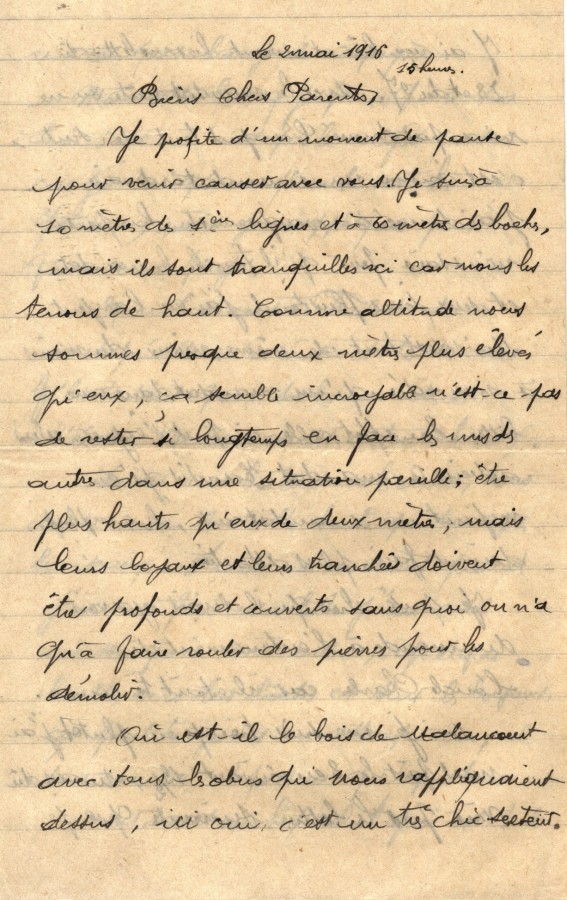 Le 2 mai 1916
15 heures.
Biens Chers Parents,
Je profite d'un moment de pause
pour venir causer avec vous. Je suis à
10 mètres des 1ères lignes et à 60 mètres des boches,
mais ils sont tranquilles ici car nous les
tenons de haut. Comme altitude nous
sommes presque deux mètres plus élevés
qu'eux, ça semble incroyable n'est-ce pas
de rester si longtemps en face les uns des
autres dans une situation pareille; être
plus hauts qu'eux de deux mètres, mais
leurs boyaux et leurs tranchées doivent
être profonds et couverts sans quoi on n'a
qu'à faire rouler des pierres pour les
démolir.
Où est-il le bois de Malancourt
avec tous les obus qui nous rappliquaient
dessus, ici oui, c'est un très chic secteur.